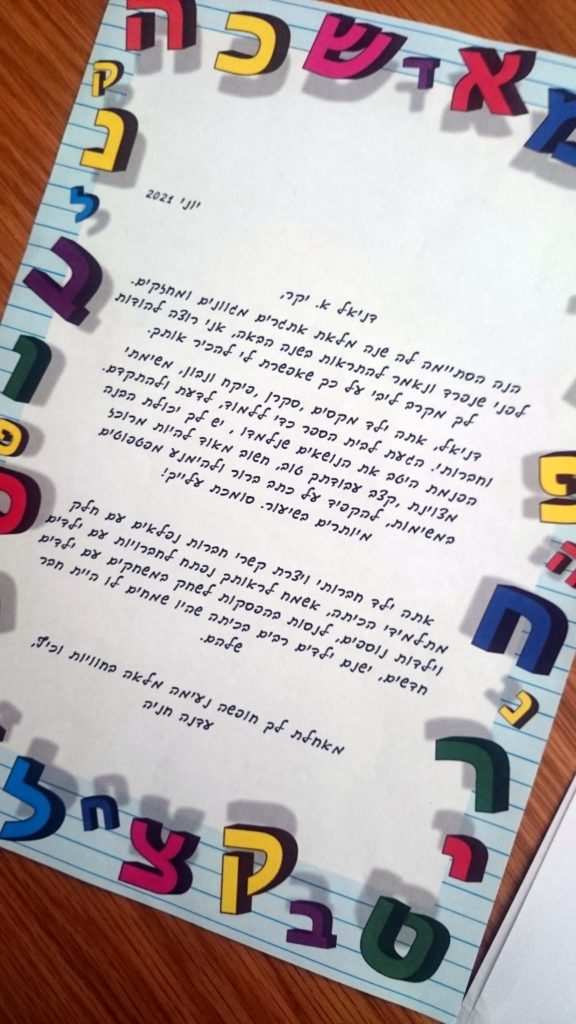 ה כ ש ד א מ
ק
נ
ל
ב
ו
פ
ס
יוני 2021
דניאל א. יקר,
הנה הסתיימה לה שנה מלאת אתגרים מגוונים ומחזקים.
לפני שנפרד ונאמר להתראות בשנה הבאה, אני רוצה להודות
לך מקרב ליבי על כך שאפשרת לי להכיר אותך.
דניאל, אתה ילד מקסים ,סקרן ,פיקח ונבון, משימתי
וחברותי. הגעת לבית הספר כדי ללמוד, לדעת ולהתקדם.
הפנמת היטב את הנושאים שנלמדו , יש לך יכולת הבנה
מצוינת ,קצב עבודתך טוב, חשוב מאוד להיות מרוכז
במשימות, להקפיד על כתב ברור ולהימנע מפטפוטים
מיותרים בשיעור. סומכת עלייך!
אתה ילד חברותי ויצרת קשרי חברות נפלאים עם חלק
מתלמידי הכיתה, אשמח לראותך נפתח לחברויות עם ילדים
וילדות נוספים, לנסות בהפסקות לשחק במשחקים עם ילדים
חדשים, ישנם ילדים רבים בכיתה שהיו שמחים לו היית חבר
שלהם.
מאחלת לך חופשה נעימה מלאה בחוויות וכיף,
עדנה חניה
פ
ה
ח
נ
ר
י
ל ח צ ק ב ט